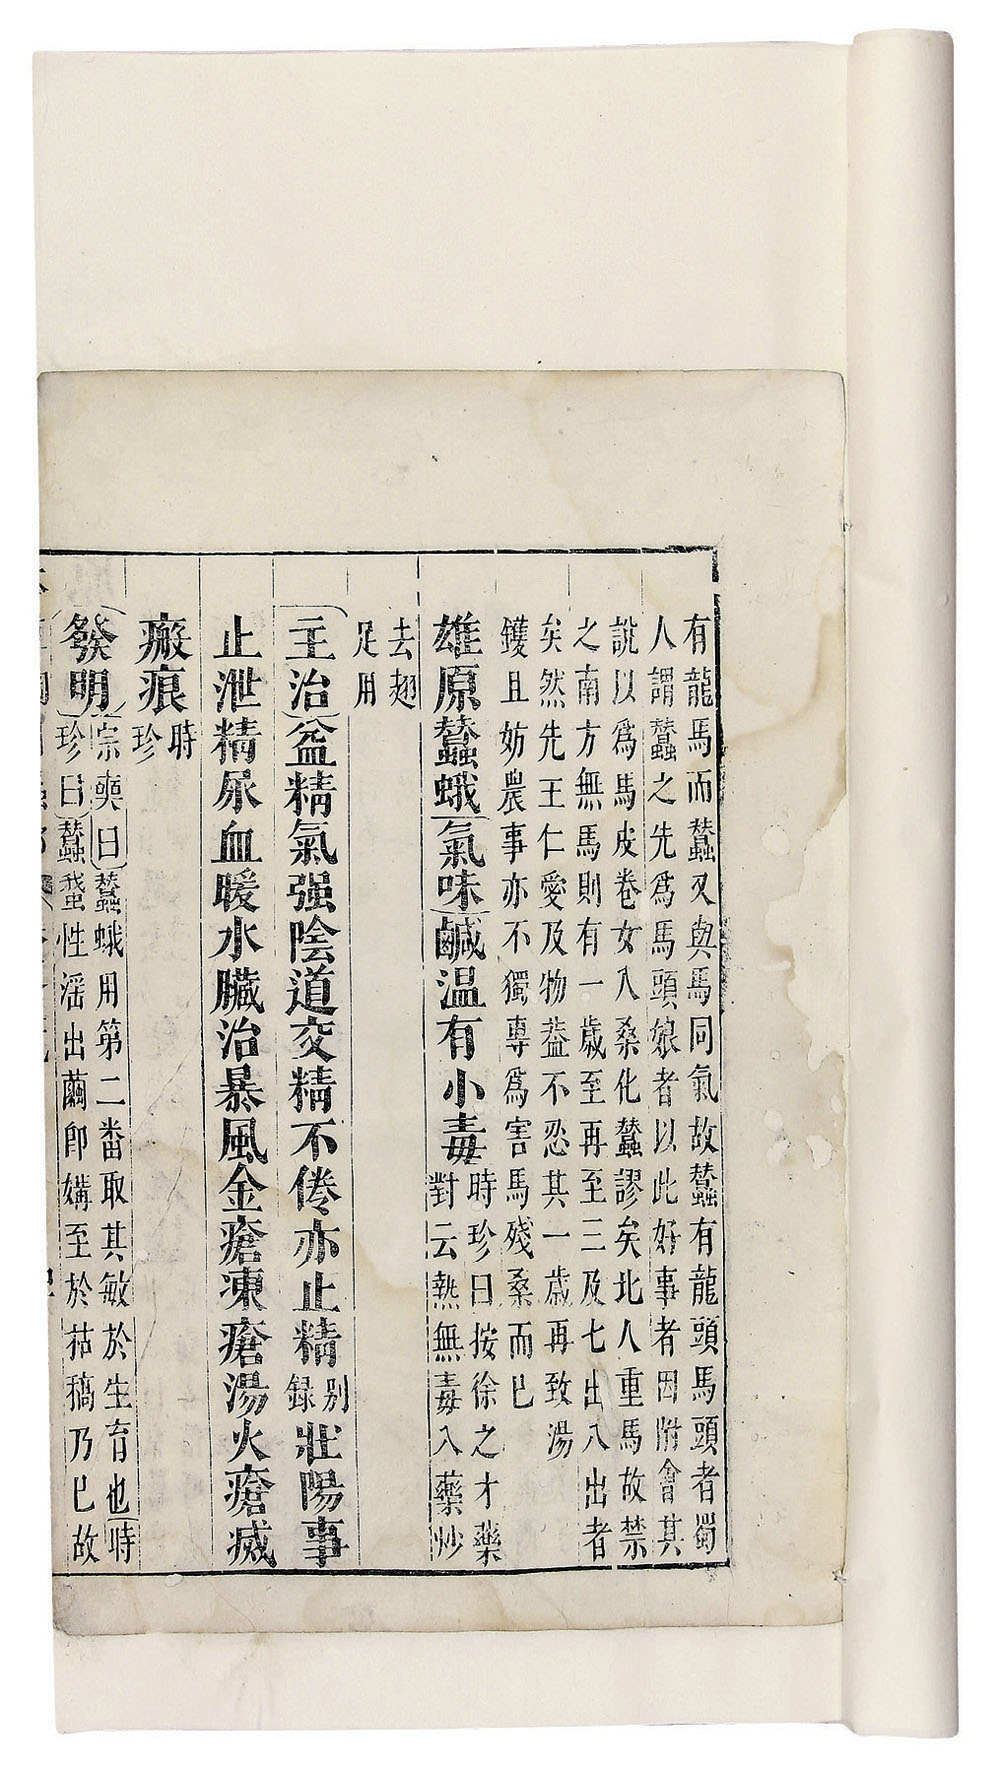 有龍馬而蠶又與馬同氣故蠶有龍頭馬頭者蜀
人謂蠶之先爲馬頭娘者以此好事者因附會其
說以爲馬皮卷女入桑化蠶謬矣北人重馬故禁
之南方無馬則有一歲至再至三及七出八出者
矣然先王仁愛及物葢不忍其一歲再致湯
鑊且妨農事亦不獨專爲害馬殘桑而已
雄原蠶蛾氣味鹹温有小毒時珍曰按徐之才藥
對云熱無毒入藥炒
去翅
足用
主治益精氣强陰道交精不倦亦止精别録壯陽事
止泄精尿血暖水臟治暴風金瘡凍瘡湯火瘡滅
瘢痕時珍
發明宗奭曰蠶蛾用第二番取其敏於生育也時
珍曰蠶蛾性淫出繭卽媾至於枯槁乃已故